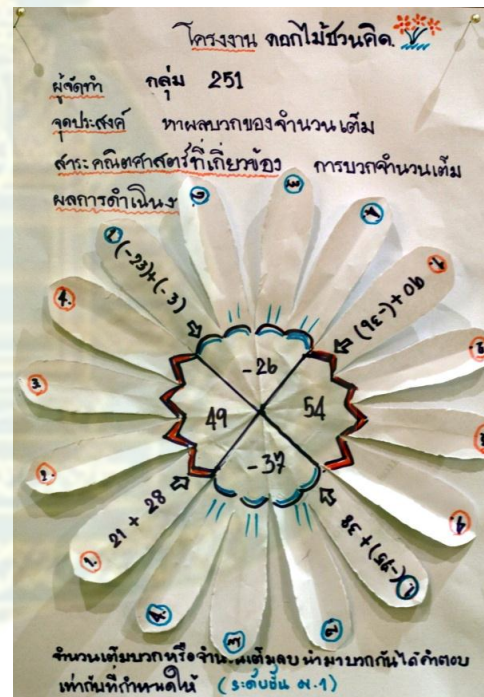 โครงงาน ดอกไม้ชวนคิด
ผู้จัดทำ กลุ่ม 251
จุดประสงค์ หาผลบวกของจำนวนเต็ม
สาระคณิตศาสตร์ที่เกี่ยวข้อง การบวกจำนวนเต็ม
ผลการดำเนินง
(-23)+(-3)
90+(-36)
-26
49
54
-37
21 + 28
(-95)+38
จำนวนเต็มบวกหรือจำนวนเต็มลบ นำมาบวกกันได้คำตอบ
เท่ากันที่กำหนดให้ (ระดับชั้น ม.1)